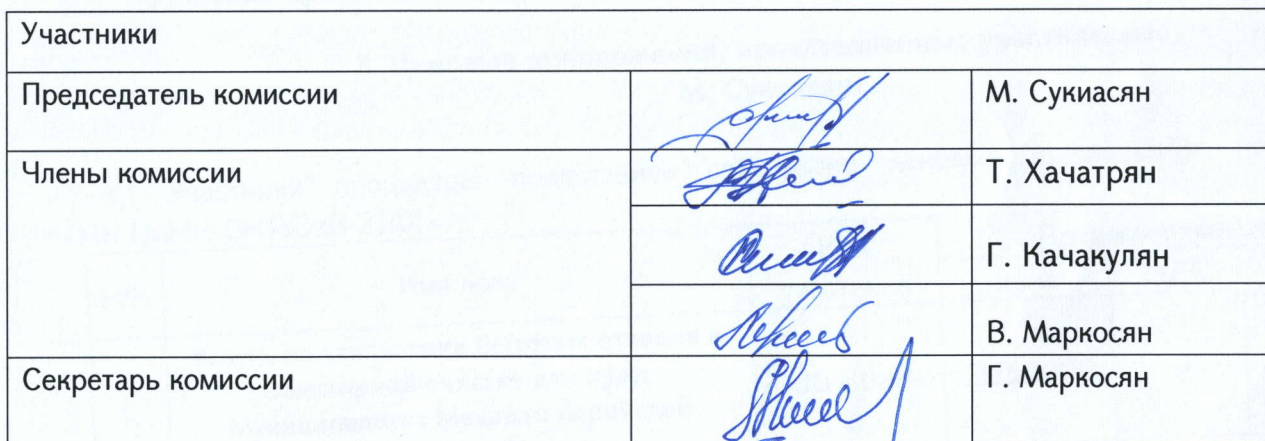 Участники
Председатель комиссии М. Сукиасян
Члены комиссии Т. Хачатрян
Г. Качакулян
В. Маркосян
Секретарь комиссии Г. Маркосян